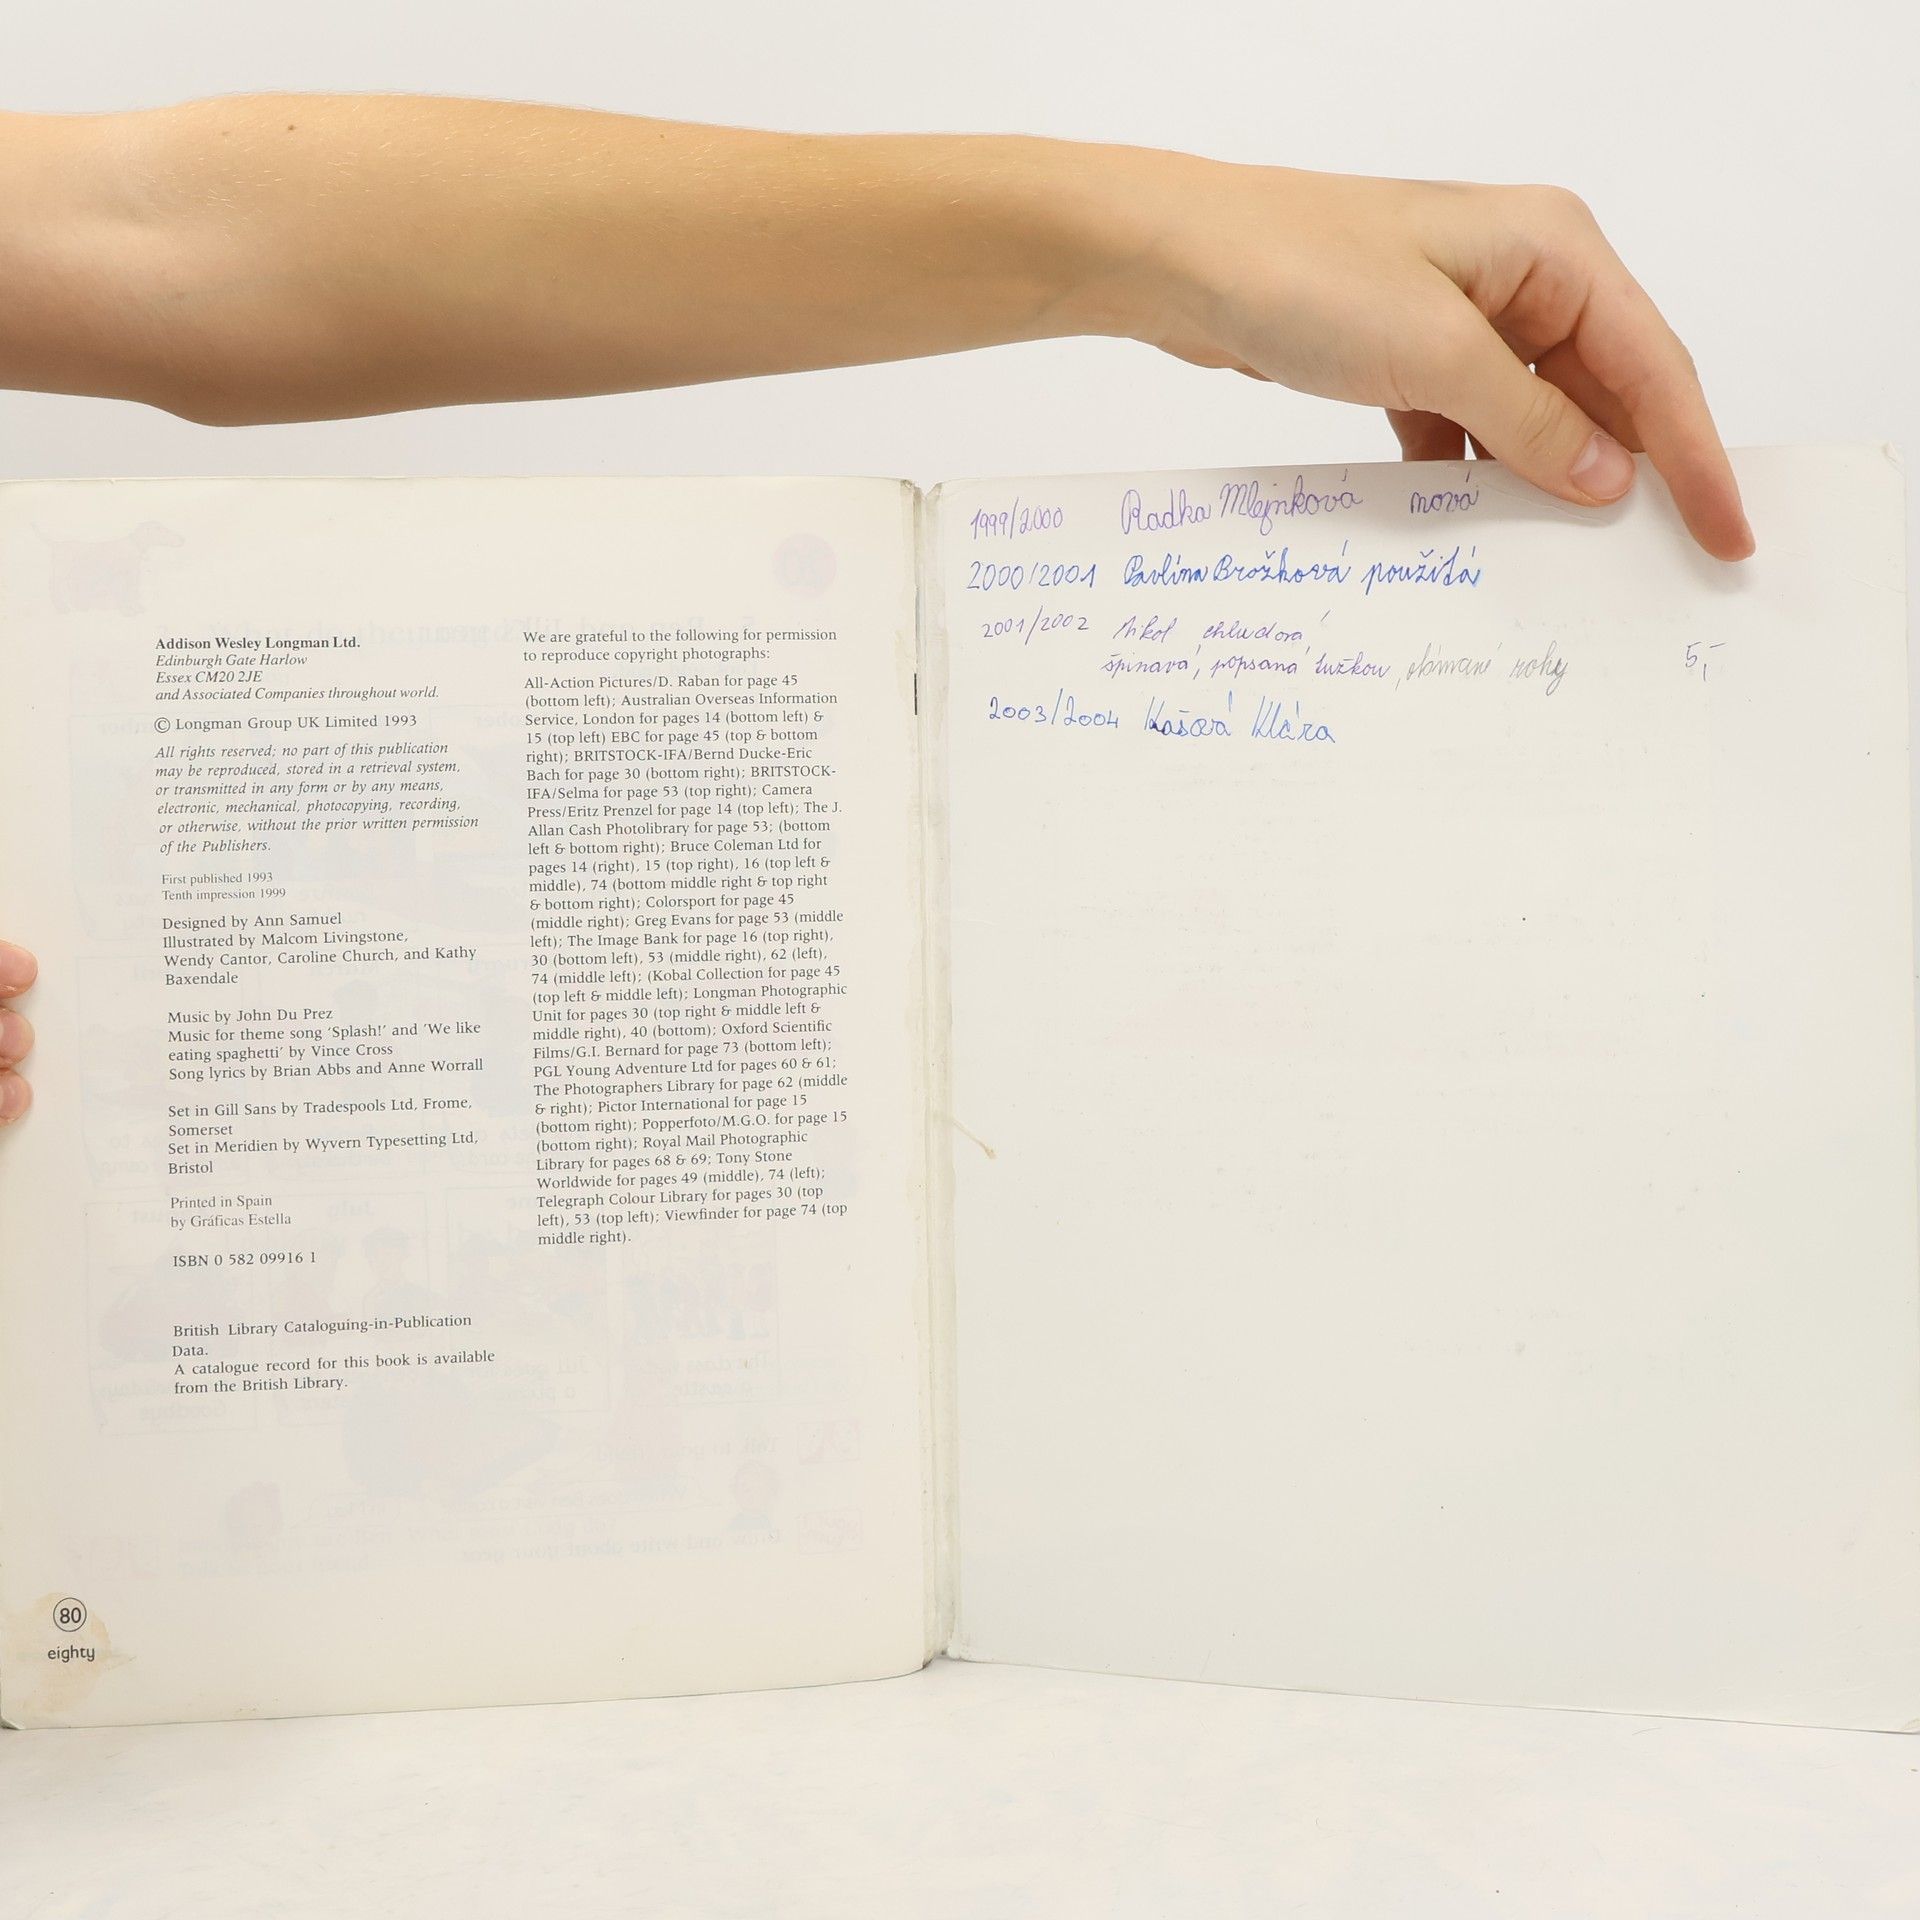 Addison Wesley Longman Ltd.
Edinburgh Gate Harlow
Essex CM20 2JE
and Associated Companies throughout world.
© Longman Group UK Limited 1993
All rights reserved; no part of this publication
may be reproduced, stored in a retrieval system,
or transmitted in any form or by any means,
electronic, mechanical, photocopying, recording,
or otherwise, without the prior written permission
of the Publishers.
First published 1993
Tenth impression 1999
Designed by Ann Samuel
Illustrated by Malcom Livingstone,
Wendy Cantor, Caroline Church, and Kathy
Baxendale
Music by John Du Prez
Music for theme song ‘Splash!’ and ‘We like
eating spaghetti’ by Vince Cross
Song lyrics by Brian Abbs and Anne Worrall
Set in Gill Sans by Tradespools Ltd, Frome,
Somerset
Set in Meridien by Wyvern Typesetting Ltd,
Bristol
Printed in Spain
by Gráficas Estella
ISBN 0 582 09916 1
British Library Cataloguing-in-Publication
Data.
A catalogue record for this book is available
from the British Library.
80
eighty
We are grateful to the following for permission
to reproduce copyright photographs:
All-Action Pictures/D. Raban for page 45
(bottom left); Australian Overseas Information
Service, London for pages 14 (bottom left) &
15 (top left) EBC for page 45 (top & bottom
right); BRITSTOCK-IFA/Bernd Ducke-Eric
Bach for page 30 (bottom right); BRITSTOCK-
IFA/Selma for page 53 (top right); Camera
Press/Eritz Prenzel for page 14 (top left); The J.
Allan Cash Photolibrary for page 53; (bottom
left & bottom right); Bruce Coleman Ltd for
pages 14 (right), 15 (top right), 16 (top left &
middle), 74 (bottom middle right & top right
& bottom right); Colorsport for page 45
(middle right); Greg Evans for page 53 (middle
left); The Image Bank for page 16 (top right),
30 (bottom left), 53 (middle right), 62 (left),
74 (middle left); (Kobal Collection for page 45
(top left & middle left); Longman Photographic
Unit for pages 30 (top right & middle left &
middle right), 40 (bottom); Oxford Scientific
Films/G.I. Bernard for page 73 (bottom left);
PGL Young Adventure Ltd for pages 60 & 61;
The Photographers Library for page 62 (middle
& right); Pictor International for page 15
(bottom right); Popperfoto/M.G.O. for page 15
(bottom right); Royal Mail Photographic
Library for pages 68 & 69; Tony Stone
Worldwide for pages 49 (middle), 74 (left);
Telegraph Colour Library for pages 30 (top
left), 53 (top left); Viewfinder for page 74 (top
middle right).
1999/2000 Radka Mlejnková nová
2000/2001 Pavlína Brožková použitá
2001/2002 Nikol
špinavá, popsaná tužkou, rohy 5,-
2003/2004 Klára